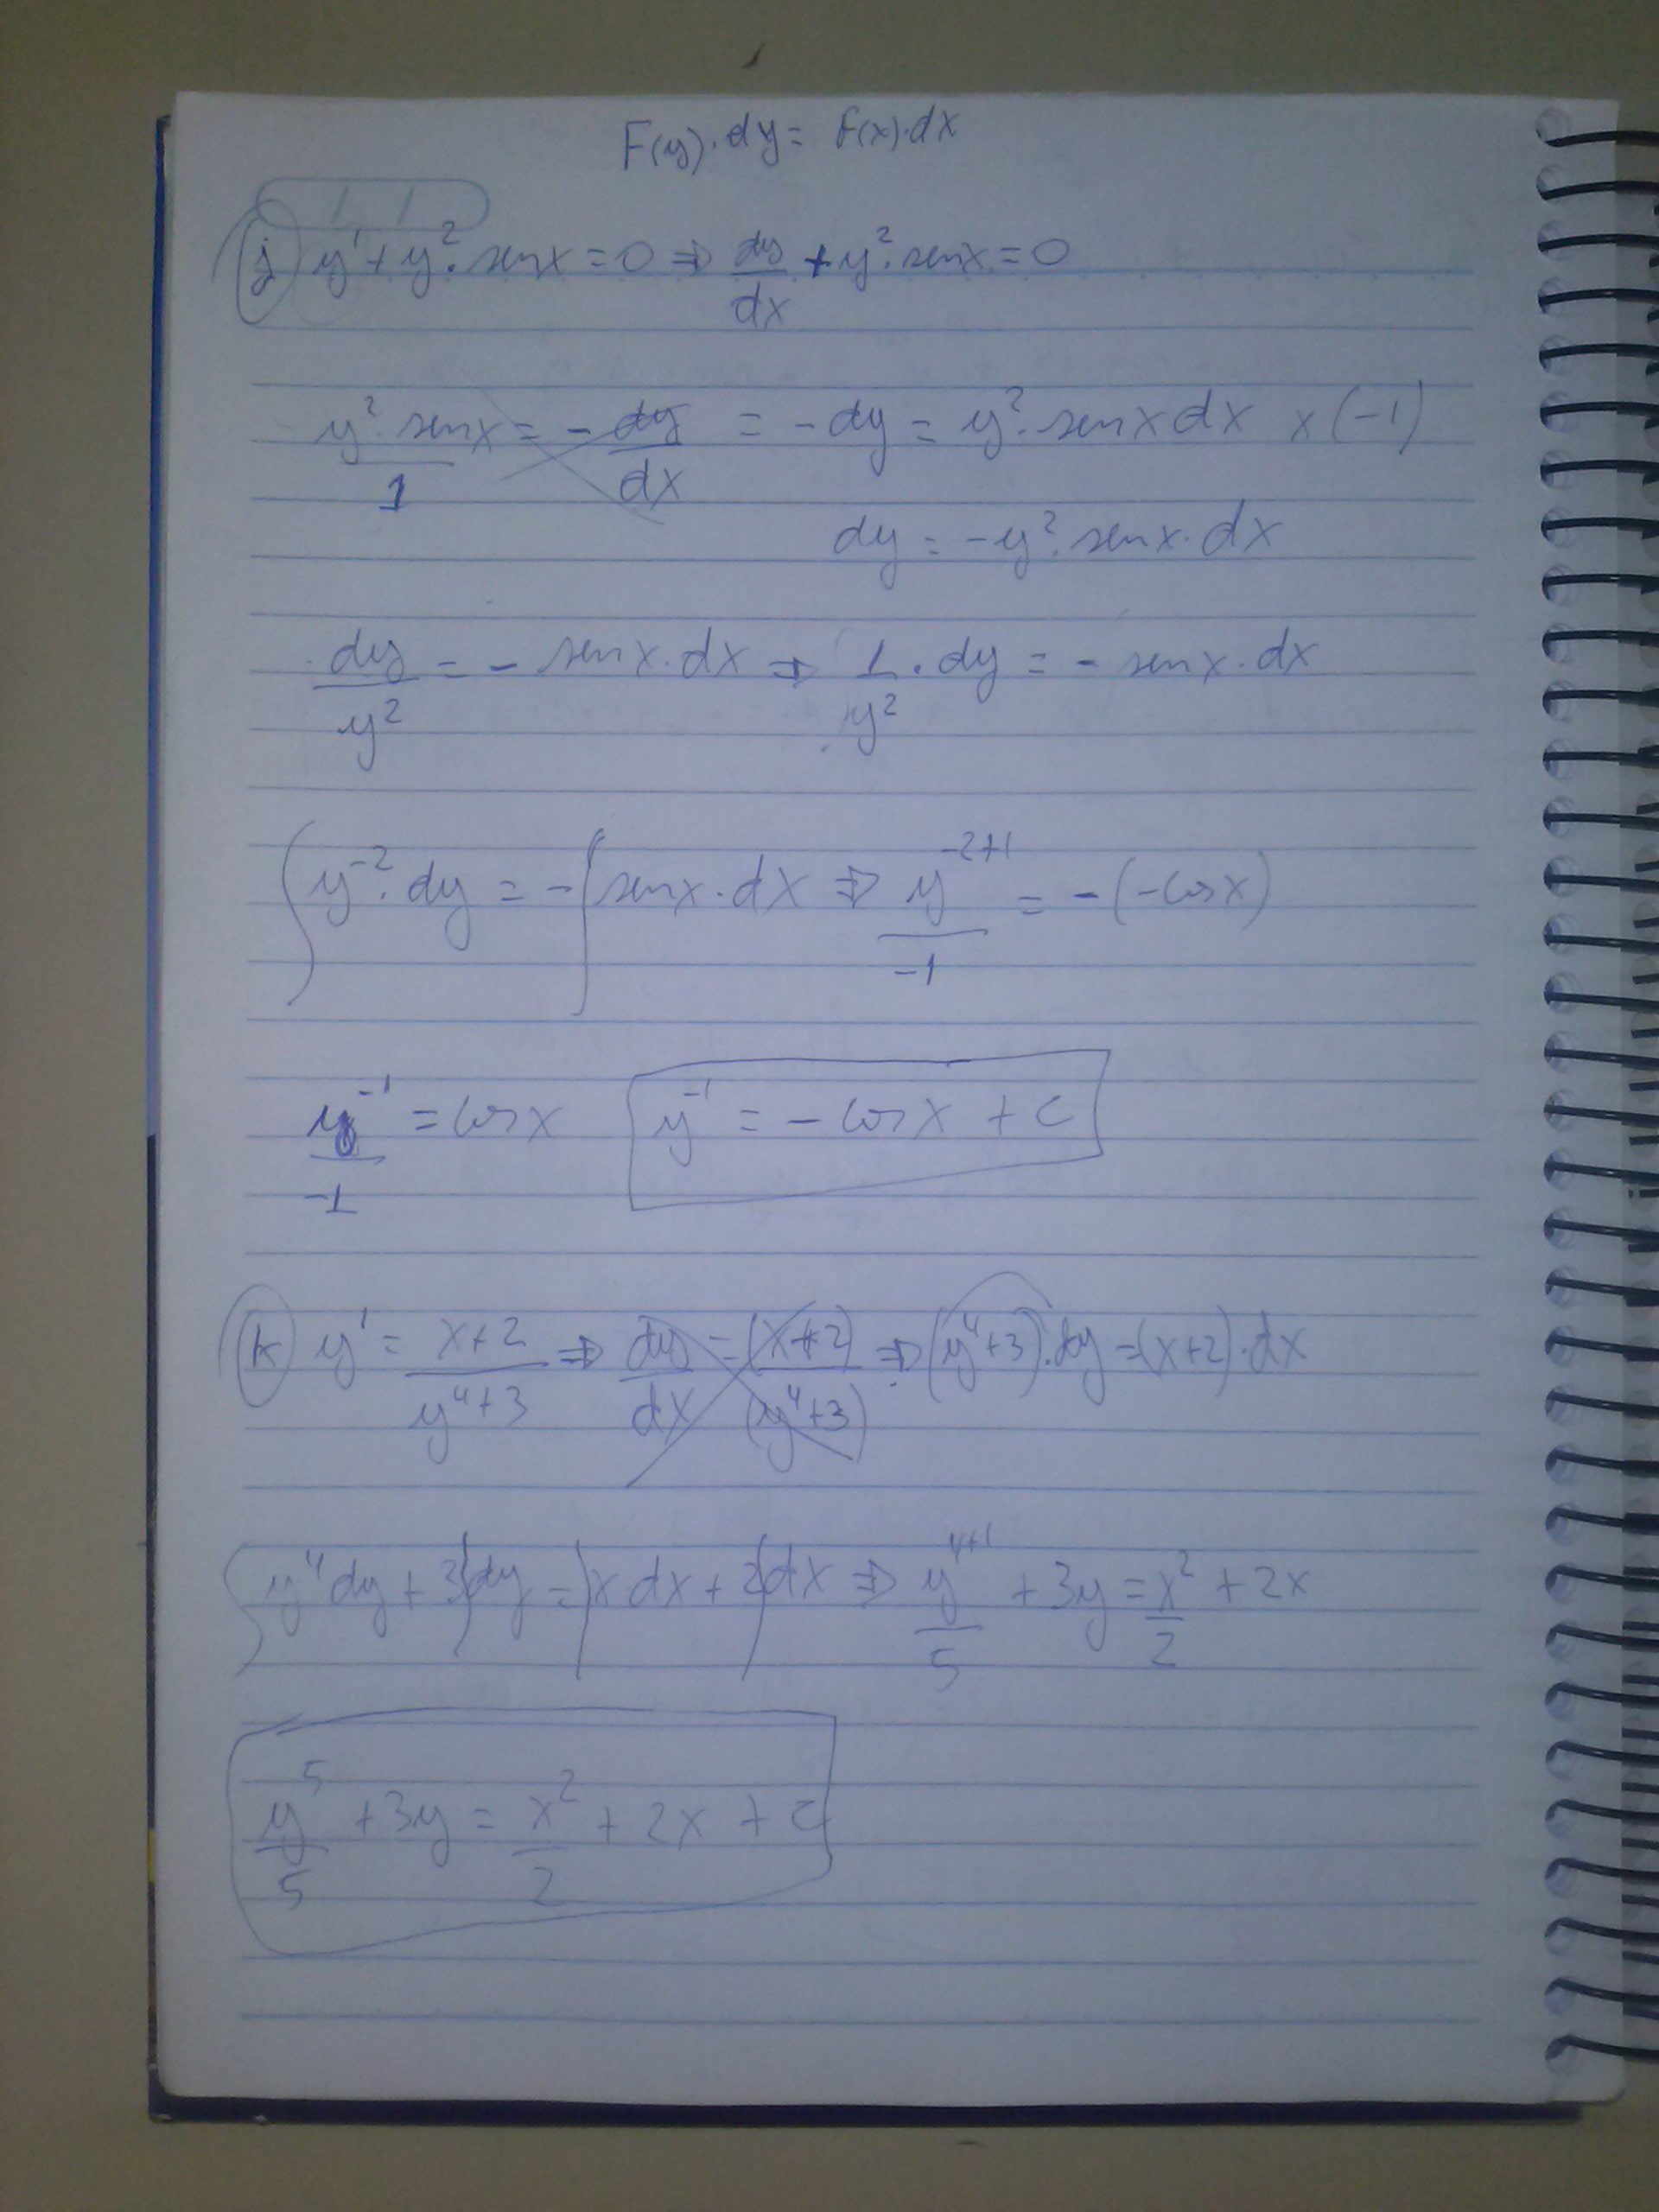 F(y).dy = f(x).dx
j) y' + y².senx = 0 ⇒ dy/dx + y².senx = 0
y².senx/1 = -dy/dx = -dy = y².senx dx x(-1)
dy = -y².senx.dx
dy/y² = - senx.dx ⇒ 1/y².dy = - senx.dx
∫y⁻².dy = -∫senx.dx ⇒ y⁻²⁺¹/-1 = -(-cosx)
y⁻¹/-1 = cosx y⁻¹ = - cosx + c
k) y' = x+2/y⁴+3 ⇒ dy/dx = (x+2)/(y⁴+3) ⇒ (y⁴+3).dy = (x+2).dx
∫y⁴dy + 3∫dy = ∫x dx + 2∫dx ⇒ y⁴⁺¹/5 + 3y = x²/2 + 2x
y⁵/5 + 3y = x²/2 + 2x + c